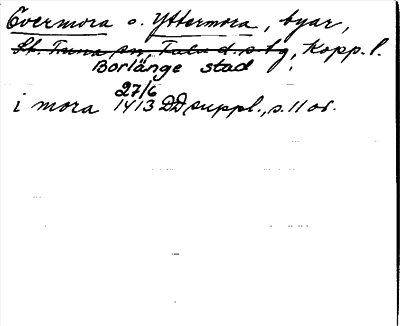 Övermora o. Yttermora, byar,
St. Tuna sn, Falu d. s. bg, Kopp. l.
Borlänge stad
27/6
i mora 1413 DD suppl., s. 11 or.